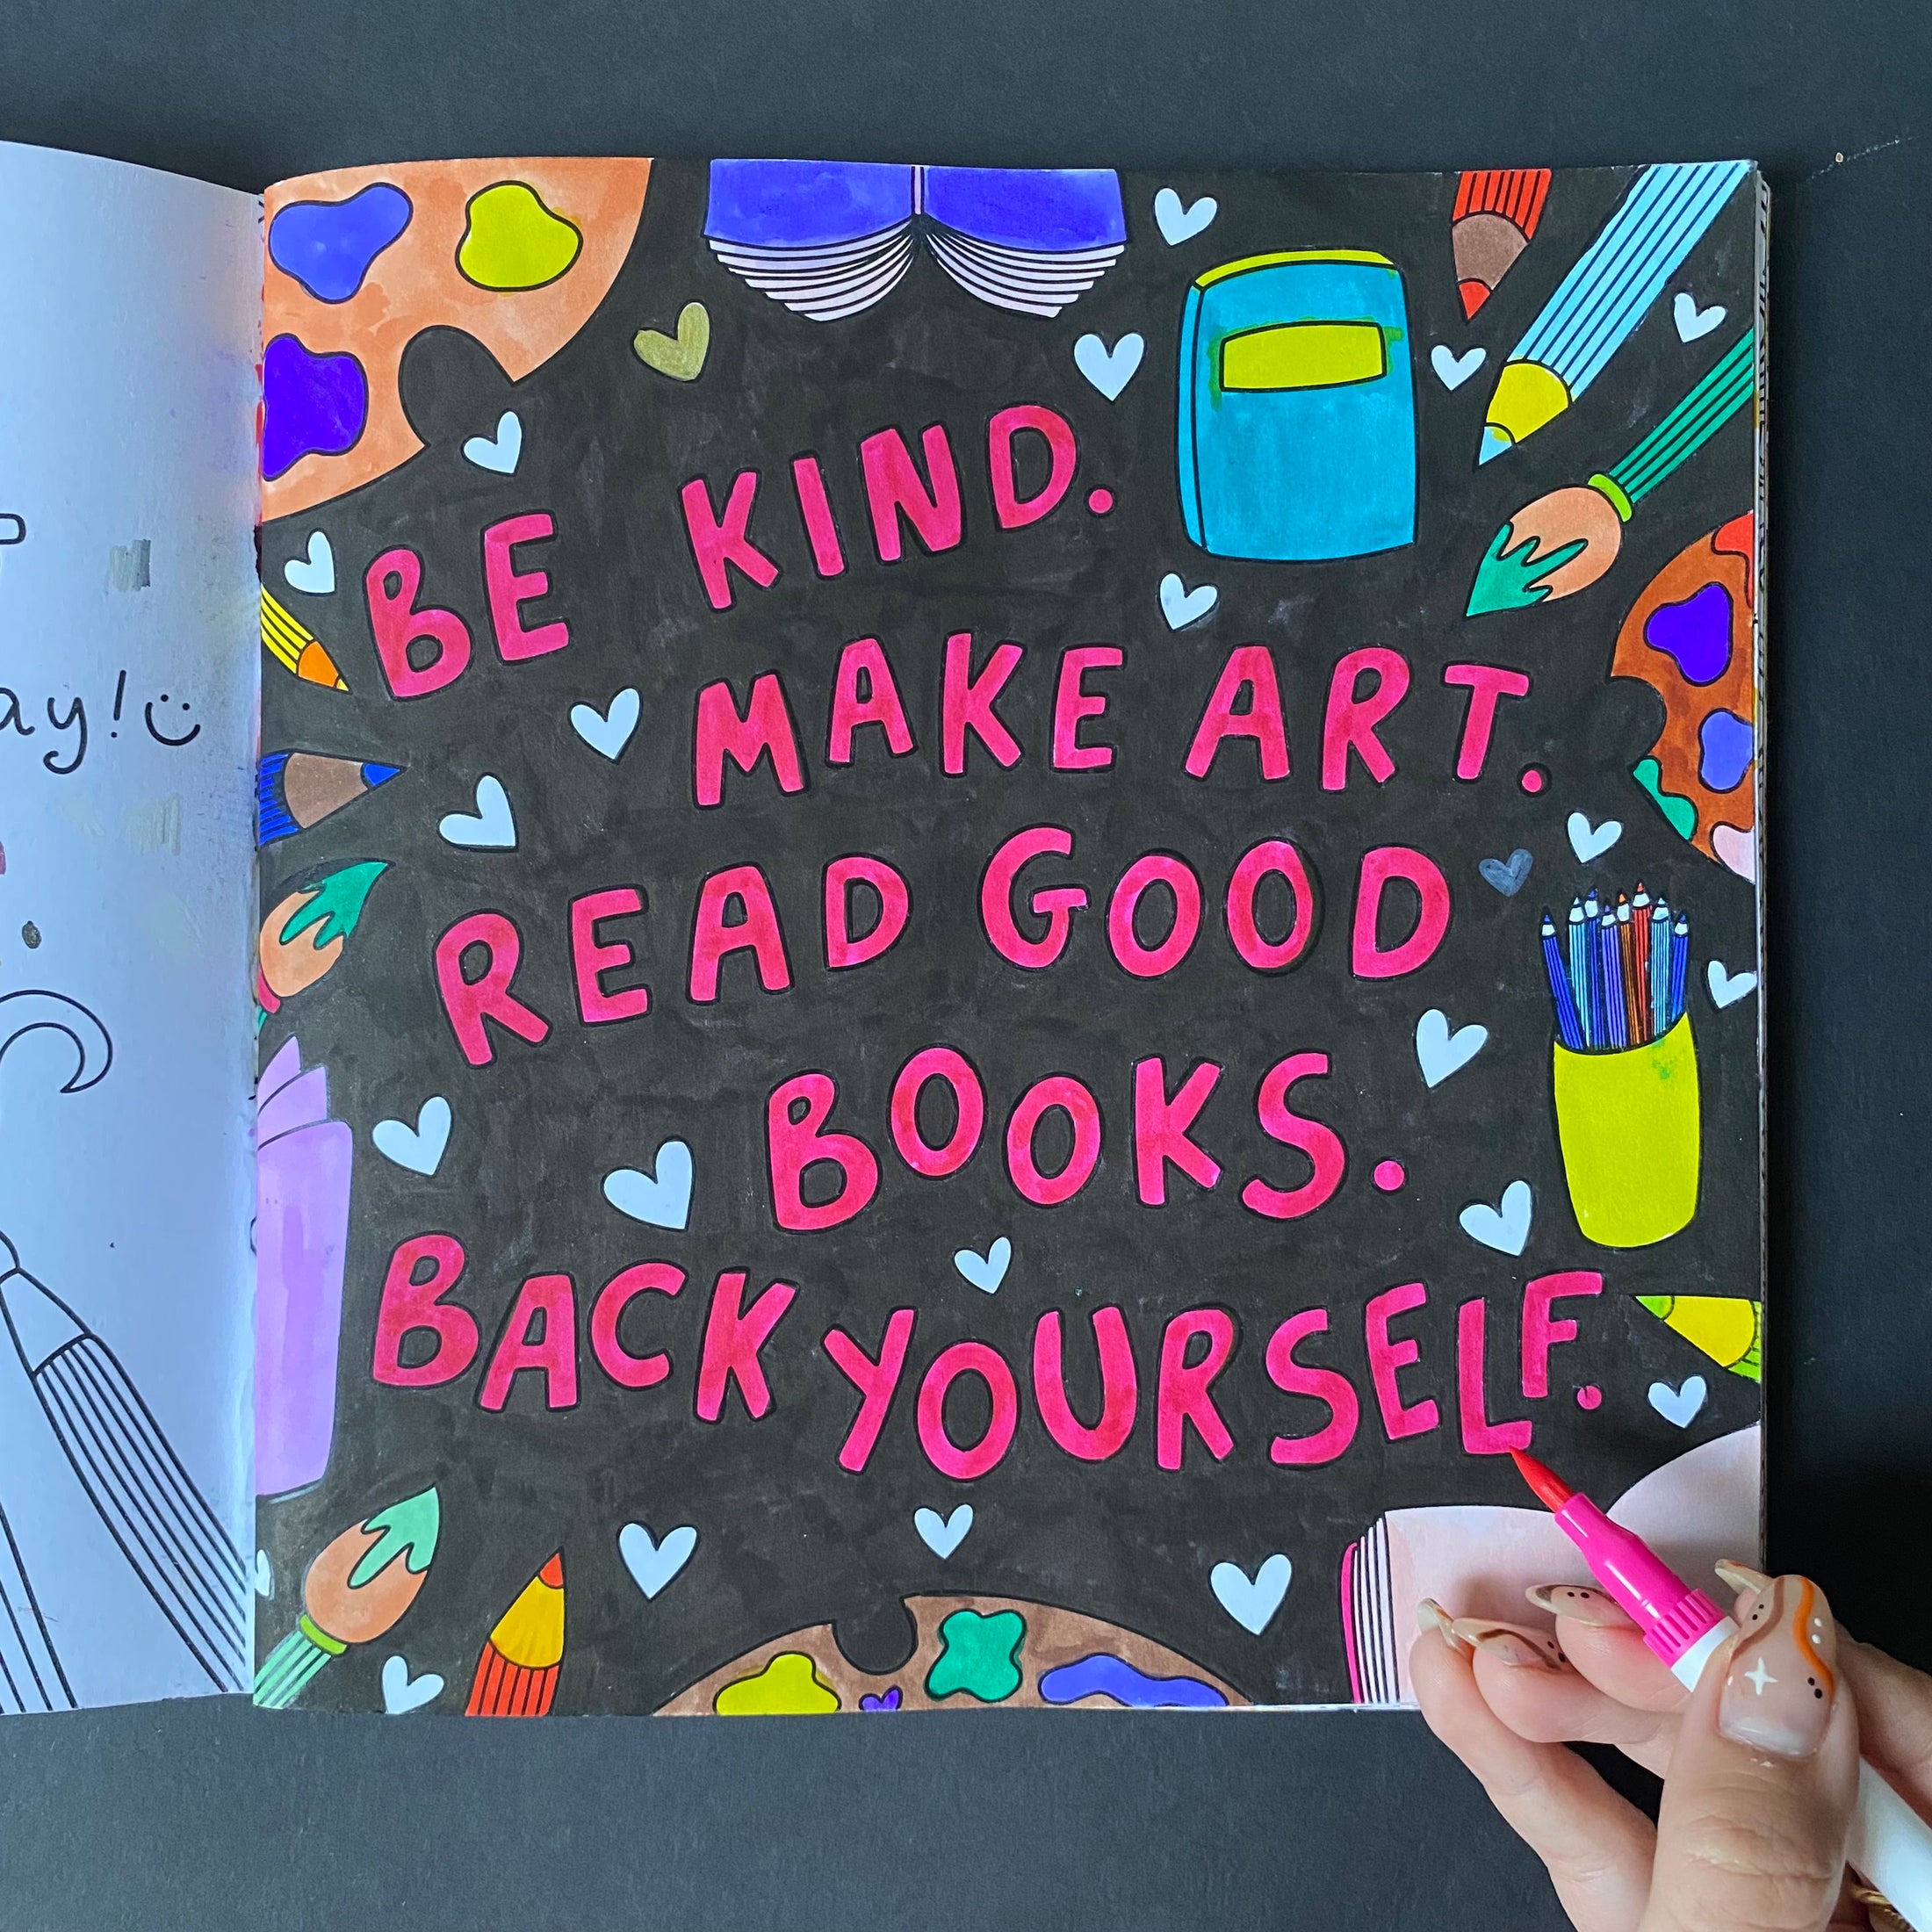 BE KIND.
MAKE ART.
READ GOOD
BOOKS.
BACK YOURSELF.